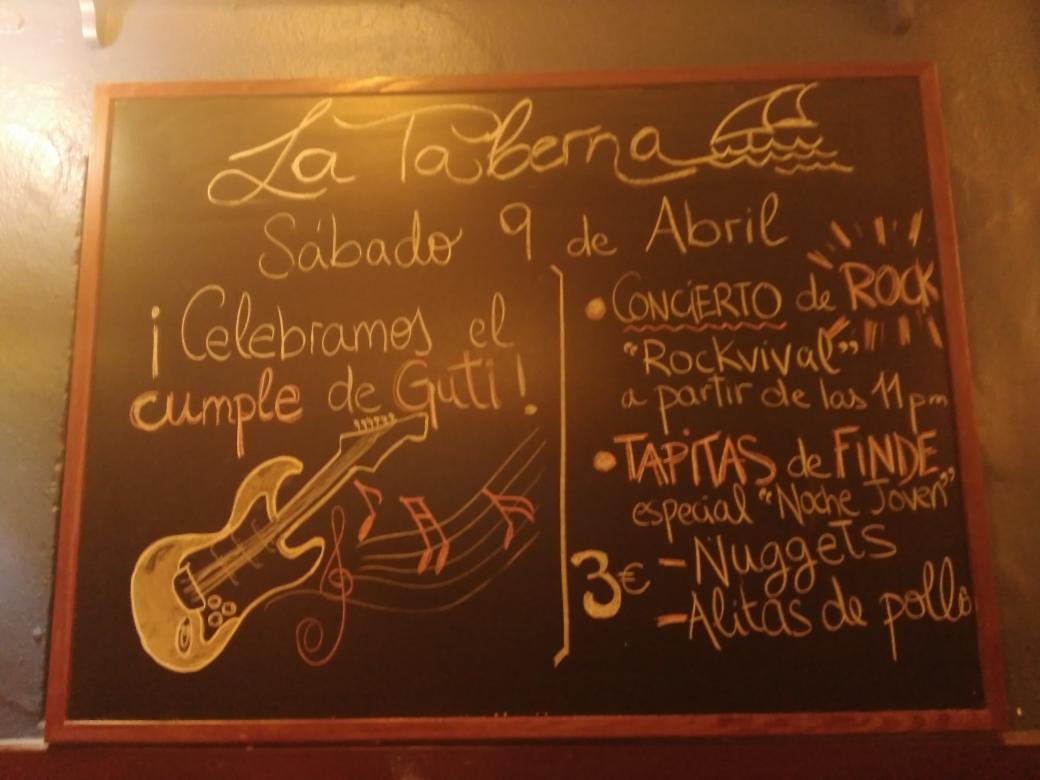 La Taberna
Sábado 9 de Abril
¡Celebramos el
cumple de Guti!
• CONCIERTO de ROCK
"Rockvival"
a partir de las 11 pm
• TAPITAS de FINDE
especial "Noche Joven"
3€ - Nuggets
- Alitas de pollo